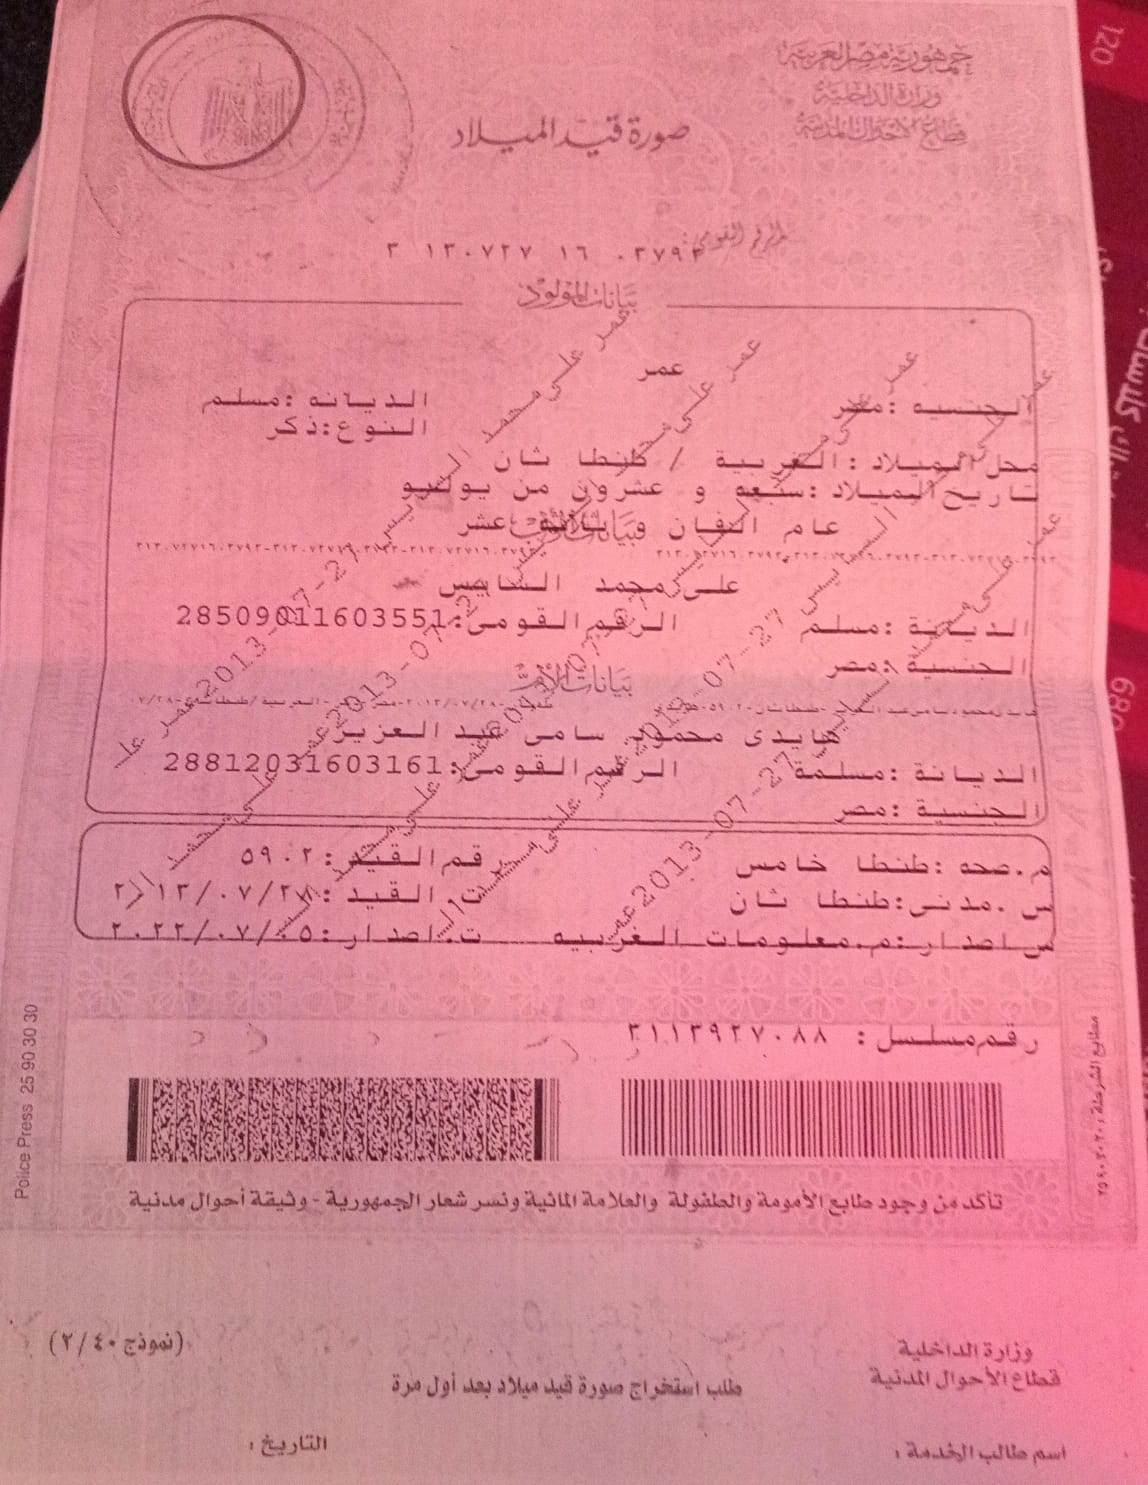 جمهورية مصر العربية
وزارة الداخلية
قطاع الأحوال المدنية
صورة قيد الميلاد
الرقم القومى:
٣ ١٣٠٧٢٧ ١٦ ٠٣٧٩٣
بيانات المولود
عمر
الجنسيه :مصر
الديانه :مسلم
النوع:ذكر
محل الميلاد :الغربية / طنطا ثان
تاريخ الميلاد :سبعه و عشرون من يوليو
عام الفان و ثلاثة عشر
بيانات الأب
على محمد السايس
الديانة :مسلم
الرقم القومى:28509011603551
الجنسية :مصر
بيانات الأم
هايدى محمود سامى عبد العزيز
الديانة :مسلمة
الرقم القومى:28812031603161
الجنسية :مصر
م.صحه :طنطا خامس
رقم القيد :٥٩٠٢
س.مدنى:طنطا ثان
ت.القيد :٢٠١٣/٠٧/٢٨
س اصدار:م.معلومات الغربيه
ت.اصدار:٢٠٢٢/٠٧/٠٥
رقم مسلسل : ٣١١٣٩٢٧٠٨٨
Police Press 25 90 30 30
مطابع الشرطة ٢٥٩٠٣٠٣٠
تأكد من وجود طابع الأمومة والطفولة والعلامة المائية ونسر شعار الجمهورية - وثيقة أحوال مدنية
وزارة الداخلية
قطاع الأحوال المدنية
(نموذج ٤٠/٢)
طلب استخراج صورة قيد ميلاد بعد أول مرة
اسم طالب الخدمة :
التاريخ :
120
680